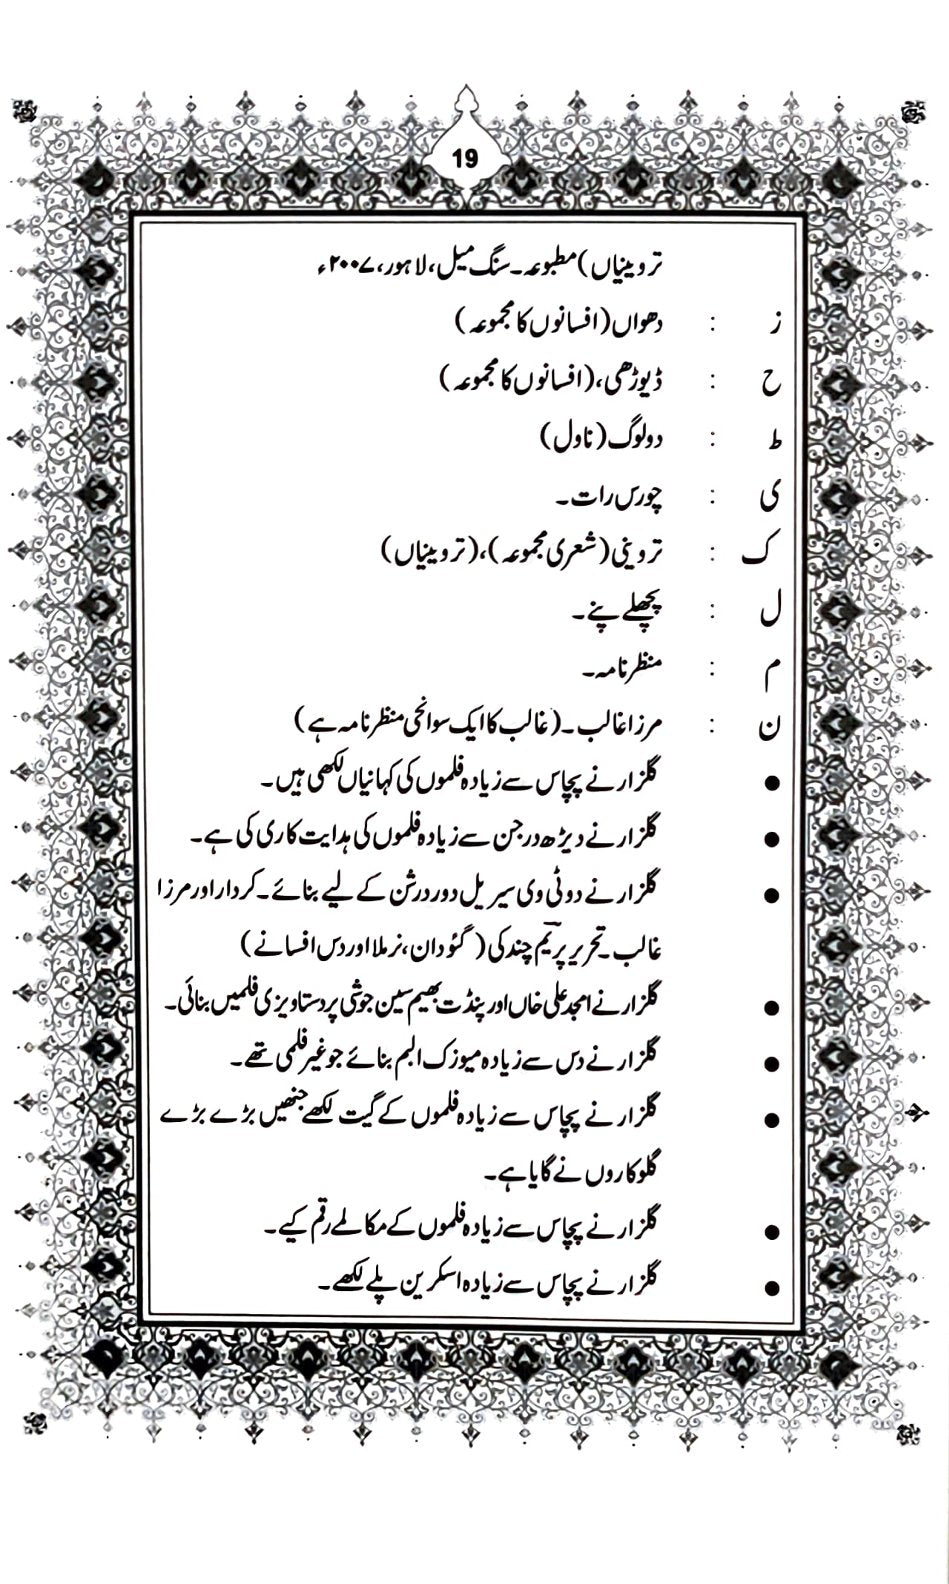 19
تروینیاں) مطبوعہ۔ سنگ میل، لاہور، ۲۰۰۷ء
ز : دھواں (افسانوں کا مجموعہ)
ح : ڈیوڑھی، (افسانوں کا مجموعہ)
ط : دولوگ (ناول)
ی : چورس رات۔
ک : تروینی (شعری مجموعہ)، (تروینیاں)
ل : پچھلے پنے۔
م : منظرنامہ۔
ن : مرزا غالب۔ (غالب کا ایک سوانحی منظرنامہ ہے)
● گلزار نے پچاس سے زیادہ فلموں کی کہانیاں لکھی ہیں۔
● گلزار نے دیڑھ درجن سے زیادہ فلموں کی ہدایت کاری کی ہے۔
● گلزار نے دو ٹی وی سیریل دور درشن کے لیے بنائے۔ کردار اور مرزا
غالب۔ تحریر پریم چند کی (گئودان، نرملا اور دس افسانے)
● گلزار نے امجد علی خاں اور پنڈت بھیم سین جوشی پر دستاویزی فلمیں بنائی۔
● گلزار نے دس سے زیادہ میوزک البم بنائے جو غیر فلمی تھے۔
● گلزار نے پچاس سے زیادہ فلموں کے گیت لکھے جنھیں بڑے بڑے
گلوکاروں نے گایا ہے۔
● گلزار نے پچاس سے زیادہ فلموں کے مکالمے رقم کیے۔
● گلزار نے پچاس سے زیادہ اسکرین پلے لکھے۔